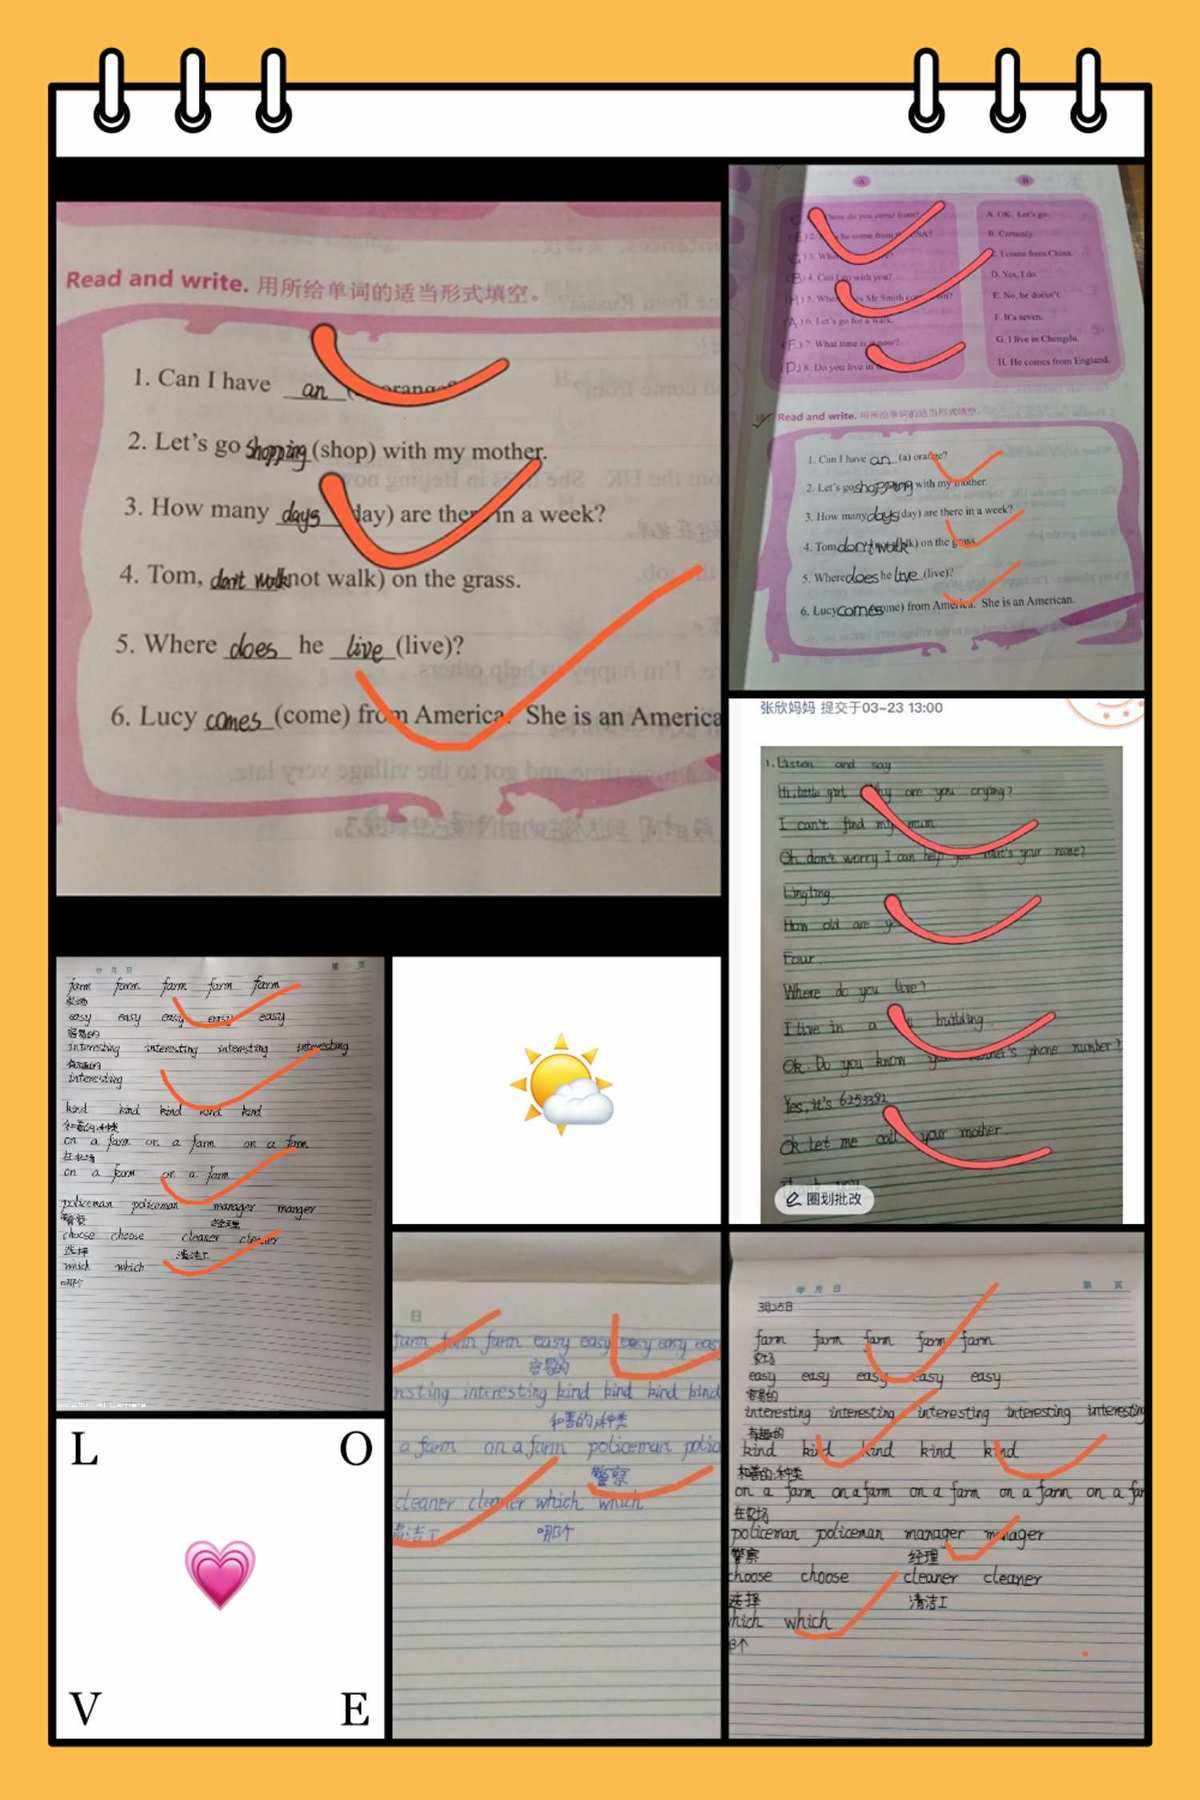 Read and write. 用所给单词的适当形式填空。
1. Can I have an orange?
2. Let's go shopping (shop) with my mother.
3. How many days day) are there in a week?
4. Tom, don't walk not walk) on the grass.
5. Where does he live (live)?
6. Lucy comes (come) from America. She is an America
A
B
how do you come from?
2. he come from
3. Whe
(B) 4. Can I go with you?
(H) 5. Whe es Mr Smith com
(A) 6. Let's go for a walk.
(F) 7. What time is now?
(D) 8. Do you live in
A. OK. Let's go.
B. Certainly.
C. I come from China.
D. Yes, I do.
E. No, he doesn't.
F. It's seven.
G. I live in Chengdu.
H. He comes from England.
Read and write. 用所给单词的适当形式填空。
1. Can I have an (a) orange?
2. Let's go shopping with my mother.
3. How many days day) are there in a week?
4. Tom don't walk lk) on the grass.
5. Where does he live (live)?
6. Lucy comes ome) from America. She is an American.
张欣妈妈 提交于03-23 13:00
1. Listen and say
Hi, little girl Why are you crying?
I can't find my mum
Oh don't worry I can help you What's your name?
Lingling.
How old are y
Four.
Where do you live?
I live in a building.
Ok. Do you know your mother's phone number?
Yes, it's 6253392
Ok let me call your mother
圈划批改
年 月 日 第 页
farm farm farm farm farm
农场
easy easy easy easy easy
容易的
interesting interesting interesting interesting
有趣的
interesting
kind kind kind kind kind
和善的;种类
on a farm on a farm on a farm
在农场
on a farm on a farm
policeman policeman manager manger
警察 经理
choose choose cleaner cleaner
选择 清洁工
which which
哪个
L O
V E
日
farm farm farm easy easy easy easy eas
容易的
nsting interesting kind kind kind kind
和善的;种类
a farm on a farm policeman polic
警察
cleaner cleaner which which
清洁工 哪个
年 月 日 第 页
3月25日
farm farm farm farm farm
农场
easy easy easy easy easy
容易的
interesting interesting interesting interesting interesting
有趣的
kind kind kind kind kind
和善的;种类
on a farm on a farm on a farm on a farm on a far
在农场
policeman policeman manager manager
警察 经理
choose choose cleaner cleaner
选择 清洁工
hich which
个